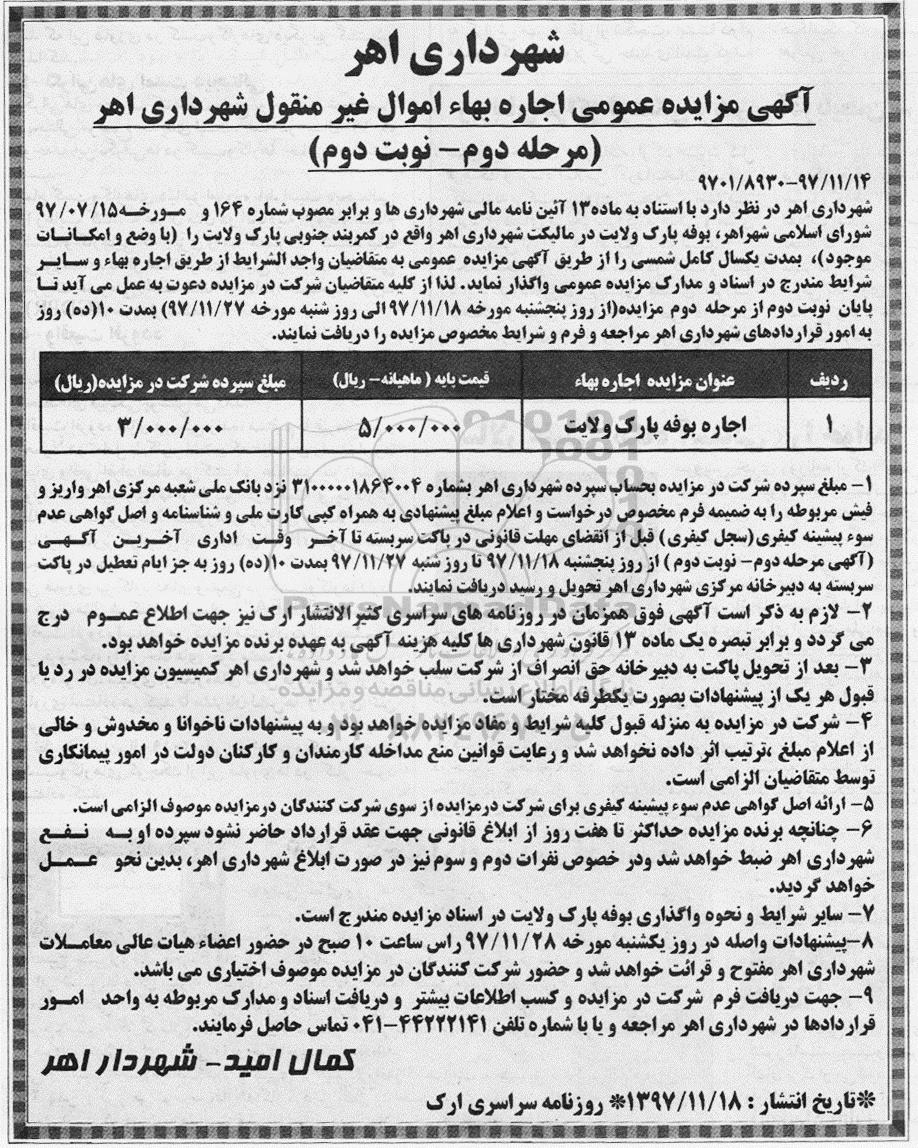 شهرداری اهر
آگهی مزایده عمومی اجاره بهاء اموال غیر منقول شهرداری اهر
(مرحله دوم- نوبت دوم)
۹۷۰۱/۸۹۳۰-۹۷/۱۱/۱۴
شهرداری اهر در نظر دارد با استناد به ماده۱۳ آئین نامه مالی شهرداری ها و برابر مصوب شماره ۱۶۴ و مورخه۹۷/۰۷/۱۵
شورای اسلامی شهراهر، بوفه پارک ولایت در مالیکت شهرداری اهر واقع در کمربند جنوبی پارک ولایت را (با وضع و امکانات
موجود)، بمدت یکسال کامل شمسی را از طریق آگهی مزایده عمومی به متقاضیان واجد الشرایط از طریق اجاره بهاء و سایر
شرایط مندرج در اسناد و مدارک مزایده عمومی واگذار نماید. لذا از کلیه متقاضیان شرکت در مزایده دعوت به عمل می آید تا
پایان نوبت دوم از مرحله دوم مزایده(از روز پنجشنبه مورخه ۹۷/۱۱/۱۸ الی روز شنبه مورخه ۹۷/۱۱/۲۷) بمدت ۱۰(ده) روز
به امور قراردادهای شهرداری اهر مراجعه و فرم و شرایط مخصوص مزایده را دریافت نمایند.
ردیف عنوان مزایده اجاره بهاء قیمت پایه ( ماهیانه- ریال) مبلغ سپرده شرکت در مزایده(ریال)
۱ اجاره بوفه پارک ولایت ۵/۰۰۰/۰۰۰ ۳/۰۰۰/۰۰۰
۱- مبلغ سپرده شرکت در مزایده بحساب سپرده شهرداری اهر بشماره ۳۱۰۰۰۰۰۱۸۶۴۰۰۴ نزد بانک ملی شعبه مرکزی اهر واریز و
فیش مربوطه را به ضمیمه فرم مخصوص درخواست و اعلام مبلغ پیشنهادی به همراه کپی کارت ملی و شناسنامه و اصل گواهی عدم
سوء پیشینه کیفری (سجل کیفری) قبل از انقضای مهلت قانونی در پاکت سربسته تا آخر وقت اداری آخرین آگهی
(آگهی مرحله دوم- نوبت دوم ) از روز پنجشنبه ۹۷/۱۱/۱۸ تا روز شنبه ۹۷/۱۱/۲۷ بمدت ۱۰(ده) روز به جز ایام تعطیل در پاکت
سربسته به دبیرخانه مرکزی شهرداری اهر تحویل و رسید دریافت نمایند.
۲- لازم به ذکر است آگهی فوق همزمان در روزنامه های سراسری کثیر الانتشار ارک نیز جهت اطلاع عموم درج
می گردد و برابر تبصره یک ماده ۱۳ قانون شهرداری ها کلیه هزینه آگهی به عهده برنده مزایده خواهد بود.
۳- بعد از تحویل پاکت به دبیرخانه حق انصراف از شرکت سلب خواهد شد و شهرداری اهر کمیسیون مزایده در رد یا
قبول هر یک از پیشنهادات بصورت یکطرفه مختار است.
۴- شرکت در مزایده به منزله قبول کلیه شرایط و مفاد مزایده خواهد بود و به پیشنهادات ناخوانا و مخدوش و خالی
از اعلام مبلغ ،ترتیب اثر داده نخواهد شد و رعایت قوانین منع مداخله کارمندان و کارکنان دولت در امور پیمانکاری
توسط متقاضیان الزامی است.
۵- ارائه اصل گواهی عدم سوء پیشینه کیفری برای شرکت درمزایده از سوی شرکت کنندگان درمزایده موصوف الزامی است.
۶- چنانچه برنده مزایده حداکثر تا هفت روز از ابلاغ قانونی جهت عقد قرارداد حاضر نشود سپرده او به نفع
شهرداری اهر ضبط خواهد شد ودر خصوص نفرات دوم و سوم نیز در صورت ابلاغ شهرداری اهر، بدین نحو عمل
خواهد گردید.
۷- سایر شرایط و نحوه واگذاری بوفه پارک ولایت در اسناد مزایده مندرج است.
۸-پیشنهادات واصله در روز یکشنبه مورخه ۹۷/۱۱/۲۸ راس ساعت ۱۰ صبح در حضور اعضاء هیات عالی معاملات
شهرداری اهر مفتوح و قرائت خواهد شد و حضور شرکت کنندگان در مزایده موصوف اختیاری می باشد.
۹- جهت دریافت فرم شرکت در مزایده و کسب اطلاعات بیشتر و دریافت اسناد و مدارک مربوطه به واحد امور
قراردادها در شهرداری اهر مراجعه و یا با شماره تلفن ۴۴۲۲۲۱۴۱-۰۴۱ تماس حاصل فرمایند.
کمال امید- شهردار اهر
*تاریخ انتشار : ۱۳۹۷/۱۱/۱۸* روزنامه سراسری ارک